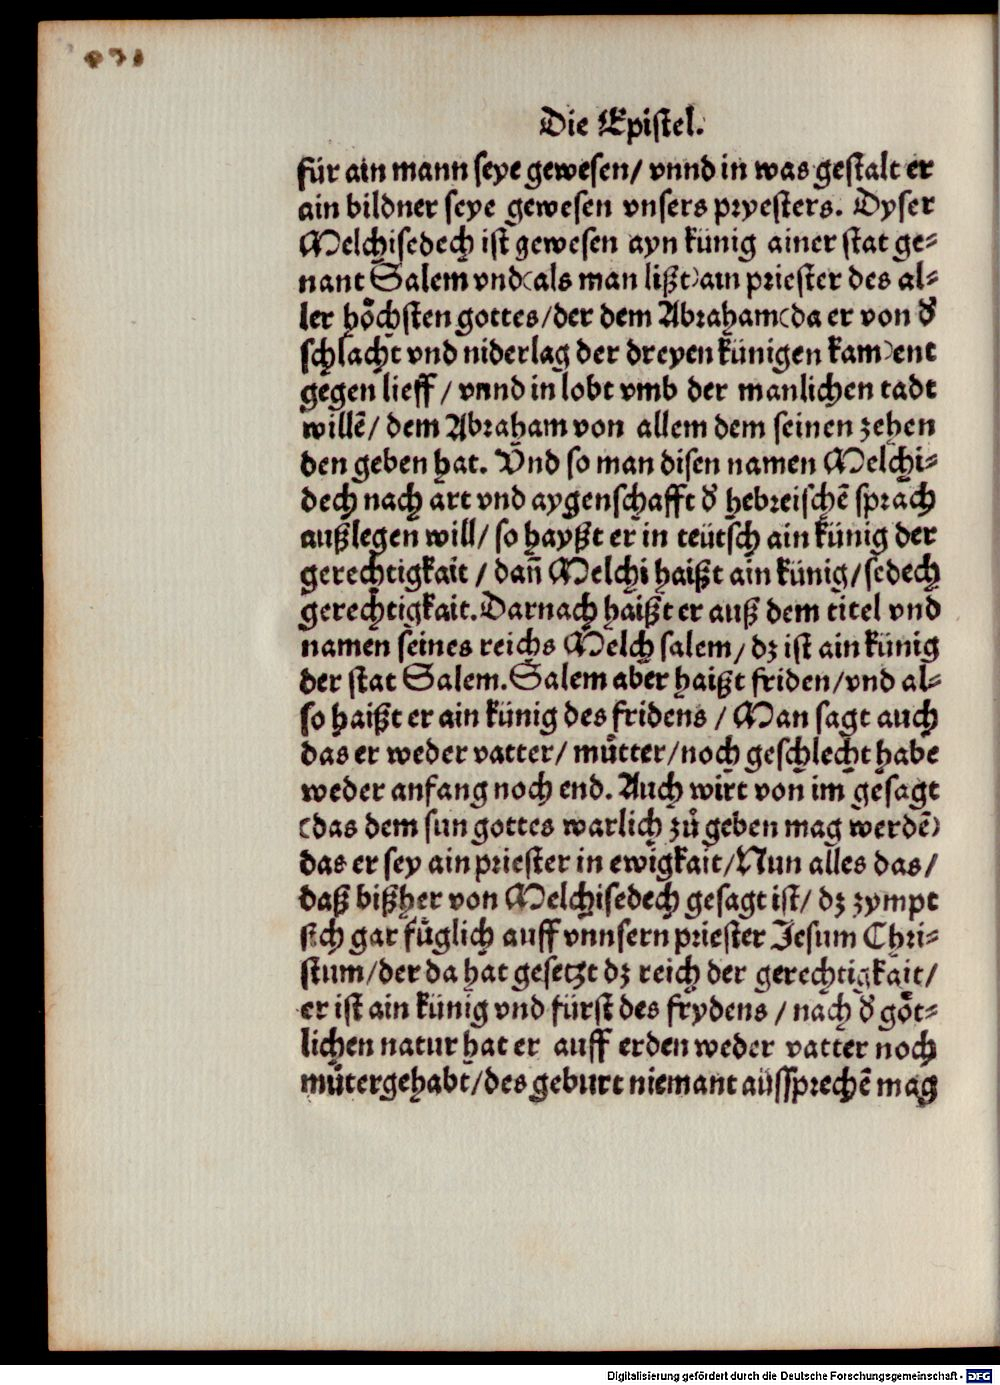 Die Epistel.
für ain mann seye gewesen/ vnnd in was gestalt er
ain bildner seye gewesen vnsers pryesters. Dyser
Melchisedech ist gewesen ayn künig ainer stat ge⸗
nant Salem vnd(als man lißt)ain priester des al⸗
ler hoͤchsten gottes/der dem Abraham(da er von d̕
schlacht vnd niderlag der dreyen künigen kam)ent
gegen lieff / vnnd in lobt vmb der manlichen tadt
willẽ/ dem Abraham von allem dem seinen zehen
den geben hat. Vnd so man disen namen Melchi⸗
dech nach art vnd aygenschafft d̕ hebreischẽ sprach
außlegen will/ so hayßt er in teütsch ain künig der
gerechtigkait / dañ Melchi haißt ain künig/sedech
gerechtigkait. Darnach haißt er auß dem titel vnd
namen seines reichs Melch salem/ dz ist ain künig
der stat Salem. Salem aber haißt friden/vnd al⸗
so haißt er ain künig des fridens / Man sagt auch
das er weder vatter/ muͤtter/noch geschlecht habe
weder anfang noch end. Auch wirt von im gesagt
(das dem sun gottes warlich zuͦ geben mag werdẽ)
das er sey ain priester in ewigkait/Nun alles das/
daß bißher von Melchisedech gesagt ist/ dz zympt
sich gar fuͤglich auff vnnsern priester Jesum Chri⸗
stum/der da hat gesetzt dz reich der gerechtigkait/
er ist ain künig vnd fürst des frydens / nach d̕ goͤt⸗
lichen natur hat er auff erden weder vatter noch
muͤter gehabt/des geburt niemant aussprechẽ mag
Digitalisierung gefördert durch die Deutsche Forschungsgemeinschaft - DFG